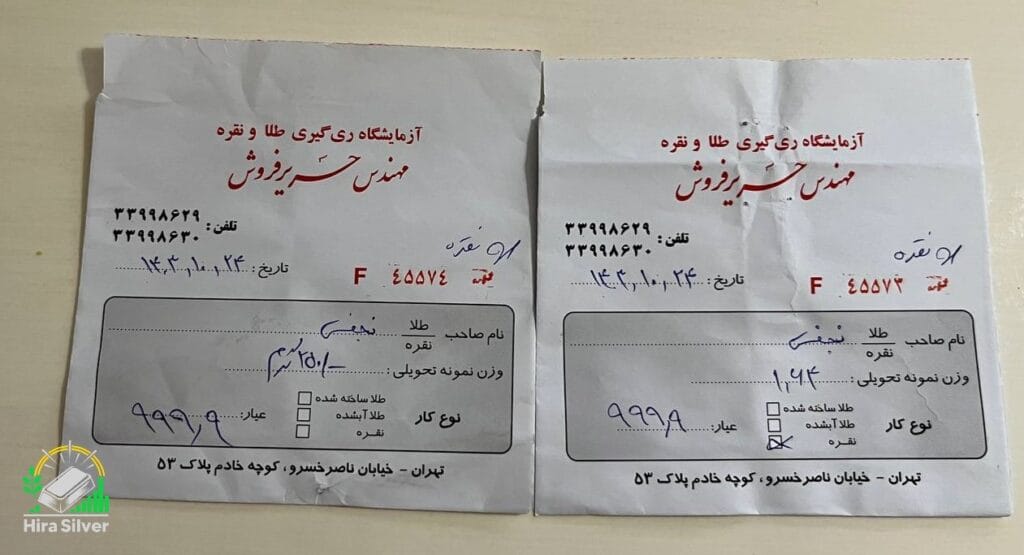 آزمایشگاه ری‌گیری طلا و نقره
مهندس حریرفروش
تلفن : ۳۳۹۹۸۶۲۹
۳۳۹۹۸۶۳۰
نقره
تاریخ : ۱۴۰۳,۱۰,۲۴
F ۴۵۵۷۴
نام صاحب طلا / نقره نجفی
وزن نمونه تحویلی : ۲۵۰/- گرم
نوع کار
طلا ساخته شده
طلا آبشده
نقره
عیار: ۹۹۹,۹
تهران - خیابان ناصرخسرو، کوچه خادم پلاک ۵۳
آزمایشگاه ری‌گیری طلا و نقره
مهندس حریرفروش
تلفن : ۳۳۹۹۸۶۲۹
۳۳۹۹۸۶۳۰
نقره
تاریخ : ۱۴۰۳,۱۰,۲۴
F ۴۵۵۷۳
نام صاحب طلا / نقره نجفی
وزن نمونه تحویلی : ۱,۶۴
نوع کار
طلا ساخته شده
طلا آبشده
نقره
عیار: ۹۹۹,۹
تهران - خیابان ناصرخسرو، کوچه خادم پلاک ۵۳
Hira Silver